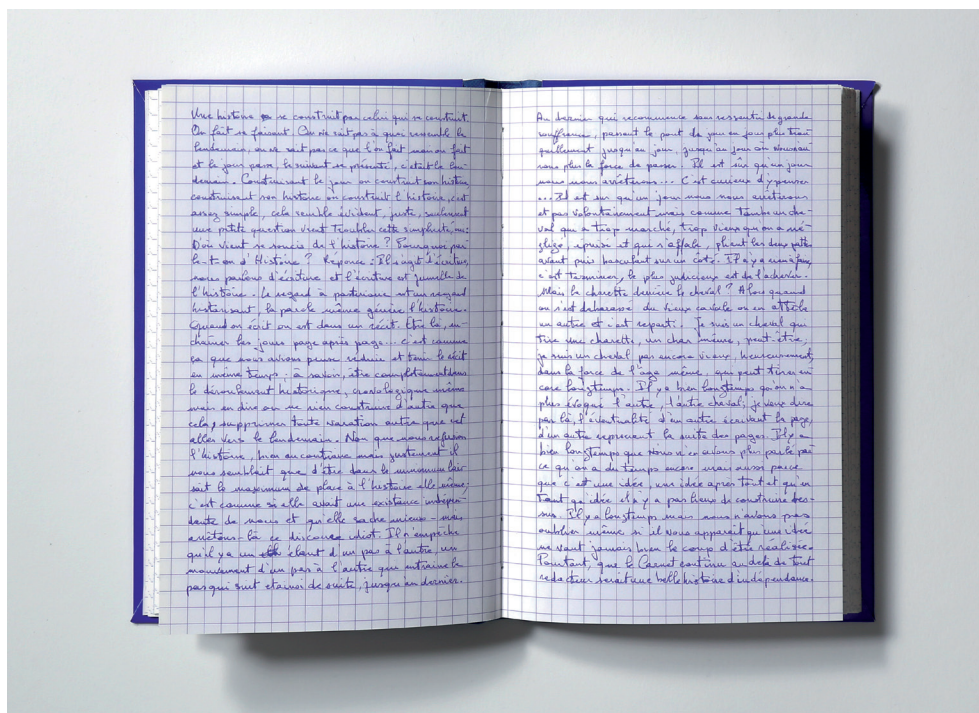 Une histoire se construit par celui qui se construit.
On fait se faisant. On ne sait pas à quoi ressemble le
lendemain, on ne sait pas ce que l'on fait mais on fait
et le jour passe, le suivant se présente, c'était le len-
demain. Construisant le jour on construit son histoire
construisant son histoire on construit l'histoire, c'est
assez simple, cela semble évident, juste, seulement
une petite question vient troubler cette simplicité,
D'où vient ce soucis de l'histoire ? Pourquoi par
le-t-on d'Histoire ? Réponse : Il s'agit d'écriture,
nous parlons d'écriture et l'écriture est jumelle de
l'histoire. Le regard à postériori est un regard
historisant, la parole même génère l'histoire.
Quand on écrit on est dans un récit. Etre là, en-
chaîner les jours page après page... c'est comme
ça que nous avions pensé réduire et tenir le récit
en même temps : à savoir, être complètement dans
le déroulement historique, chronologique même
mais en dire ou ne rien construire d'autre que
cela, supprimer toute narration autre que cet
aller vers le lendemain. Non que nous refusions
l'histoire, bien au contraire mais justement il
nous semblait que d'être dans le minimum lais
sait le maximum de place à l'histoire elle même,
c'est comme si elle avait une existence indépen-
dante de nous et qu'elle sache mieux - mais
arrêtons là ce discours idiot. Il n'empêche
qu'il y a un élant d'un pas à l'autre, un
mouvement d'un pas à l'autre qui entraîne le
pas qui suit et ainsi de suite, jusqu'au dernier.
Au dernier qui recommence sans ressentir de grande
souffrance, passant le pont de jour en jour plus tran
quillement jusqu'au jour, jusqu'au jour où nous n'au
rons plus la force de passer. Il est sûr qu'un jour
nous nous arrêterons... C'est curieux d'y penser
... Il est sûr qu'un jour nous nous arrêterons
et pas volontairement mais comme tombe un che-
val qui a trop marché, trop vieux qu'on a né-
gligé, épuisé et qui s'affale, pliant les deux pattes
avant puis basculant sur un côté. Il n'y a rien à faire,
c'est terminé, le plus judicieux est de l'achever.
Mais la charette derrière le cheval ? Alors quand
on s'est débarassé du vieux cavale on en attèle
un autre et c'est reparti. Je suis un cheval qui
tire une charette, un char même, peut-être,
je suis un cheval pas encore vieux, heureusement,
dans la force de l'âge même, qui peut tirer en
core longtemps. Il y a bien longtemps qu'on n'a
plus évoqué l'autre, l'autre cheval, je veux dire
par là, l'éventualité d'un autre écrivant la page,
d'un autre reprenant la suite des pages. Il y a
bien longtemps que nous n'en avons plus parlé par
ce qu'on a du temps encore mais aussi parce
que c'est une idée, une idée après tout et qu'en
tant qu'idée il n'y a pas lieu de construire des-
sus. Il y a longtemps mais nous n'avons pas
oublié même si il nous apparaît qu'une idée
ne vaut jamais bien le coup d'être réalisée.
Pourtant, que le Carnet continu au delà de tout
rédacteur serait une belle histoire d'indépendance.